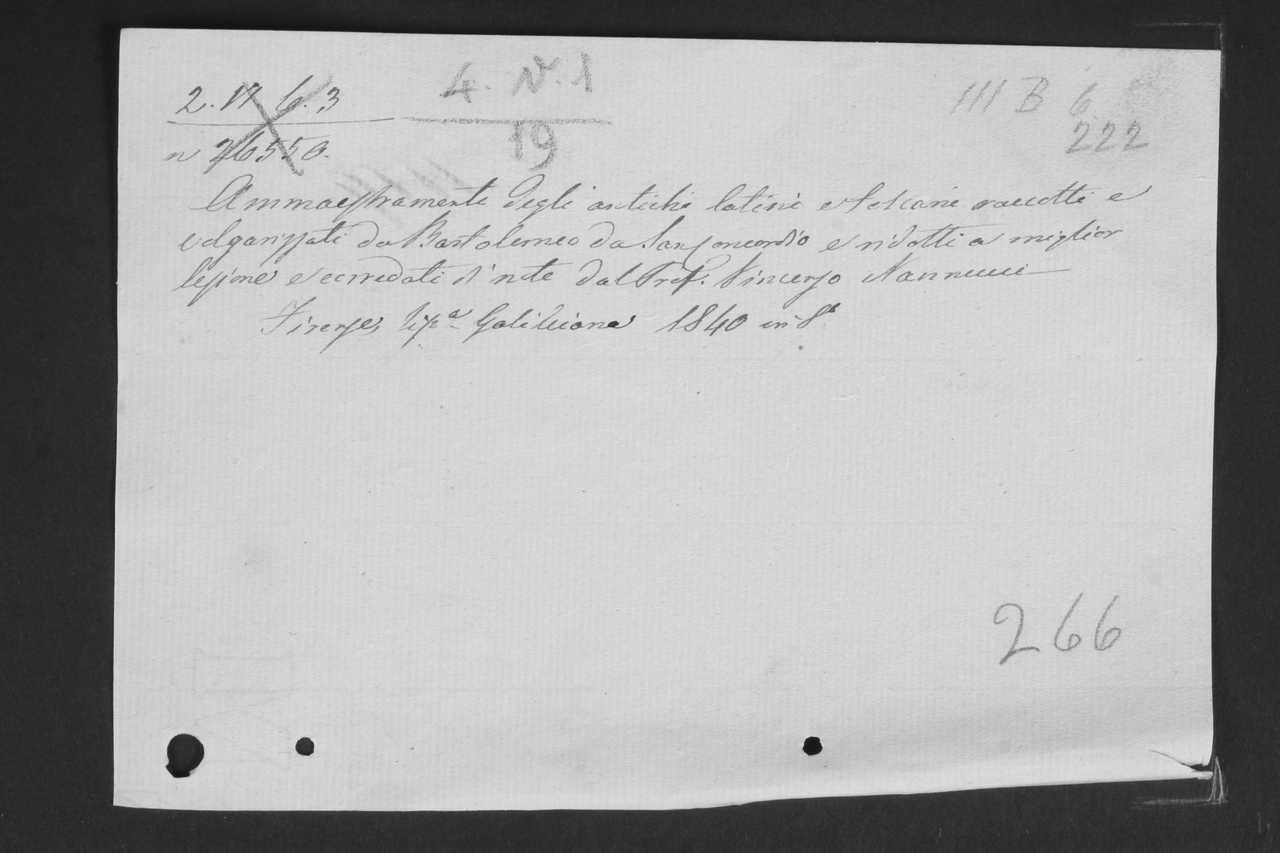 2. 17 6. 3
n 26550.
4. N. 1
19
III B 6
222
Ammaestramenti degli antichi latini e toscani raccolti e
volgarizzati da Bartolomeo da San Concordio e ridotti a miglior
lezione e corredati di note dal Prof. Vincenzo Nannucci
Firenze, tipa Galileiana 1840 in 8°
266